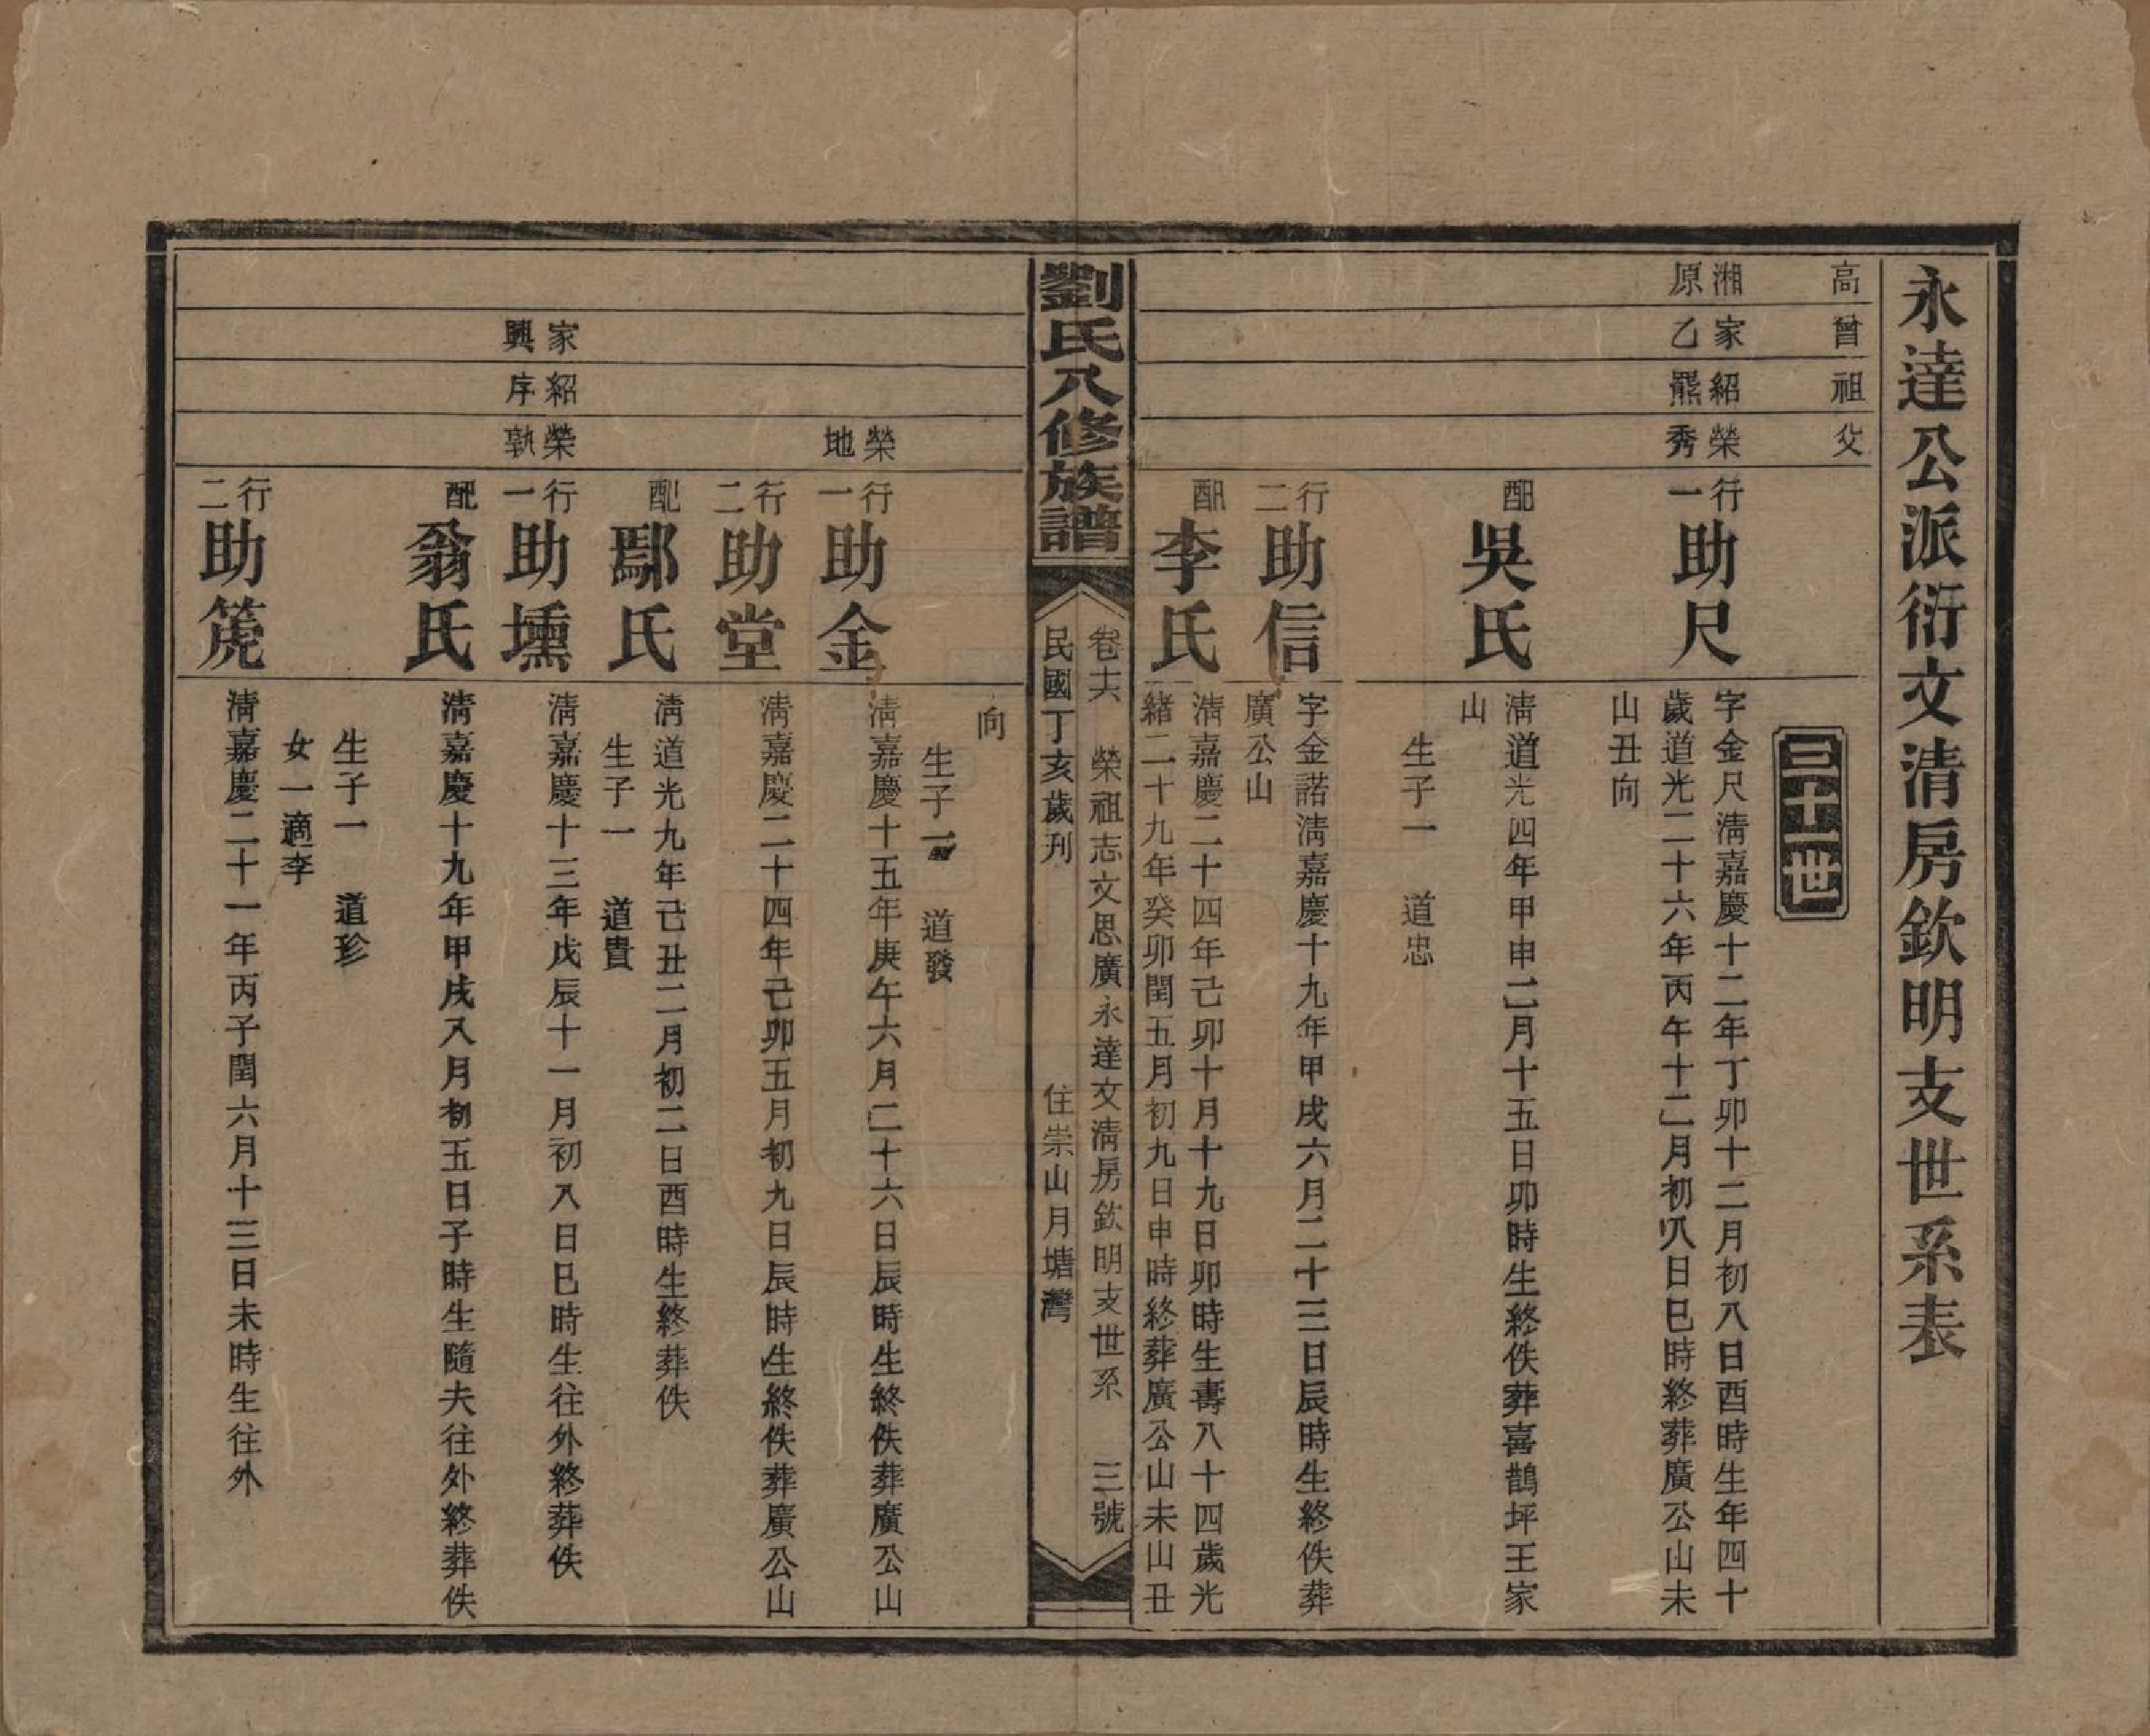 永達公派衍文清房欽明支世系表
高曾祖父
三十一世
湘原
家乙
紹熊
榮秀
行一
助尺
字金尺淸嘉慶十二年丁卯十二月初八日酉時生年四十
歲道光二十六年丙午十二月初八日巳時終葬廣公山未
山丑向
配
吳氏
淸道光四年甲申二月十五日卯時生終佚葬喜鵲坪王家
山
生子一 道忠
行二
助信
字金諾淸嘉慶十九年甲戌六月二十三日辰時生終佚葬
廣公山
配
李氏
淸嘉慶二十四年己卯十月十九日卯時生壽八十四歲光
緒二十九年癸卯閏五月初九日申時終葬廣公山未山丑
劉氏八修族譜
卷十六 榮祖志文思廣永達文淸房欽明支世系 三號
民國丁亥歲刋 住崇山月塘灣
向
生子一 道發
榮地
行一
助金
淸嘉慶十五年庚午六月二十六日辰時生終佚葬廣公山
行二
助堂
淸嘉慶二十四年己卯五月初九日辰時生終佚葬廣公山
配
鄢氏
淸道光九年己丑二月初二日酉時生終葬佚
生子一 道貴
家興
紹序
榮孰
行一
助壎
淸嘉慶十三年戊辰十一月初八日巳時生往外終葬佚
配
翁氏
淸嘉慶十九年甲戌八月初五日子時生隨夫往外終葬佚
生子一 道珍
女一適李
行二
助箎
淸嘉慶二十一年丙子閏六月十三日未時生往外